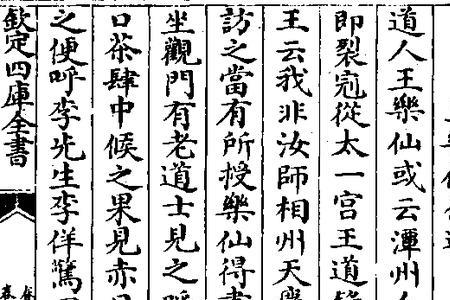 道人王樂仙或云潭州人
即裂冠從太一宫王道
王云我非汝師相州天慶
訪之當有所授樂仙得書
坐觀門有老道士見之
口茶肆中候之果見赤
之便呼李先生李佯驚
欽定四庫全書